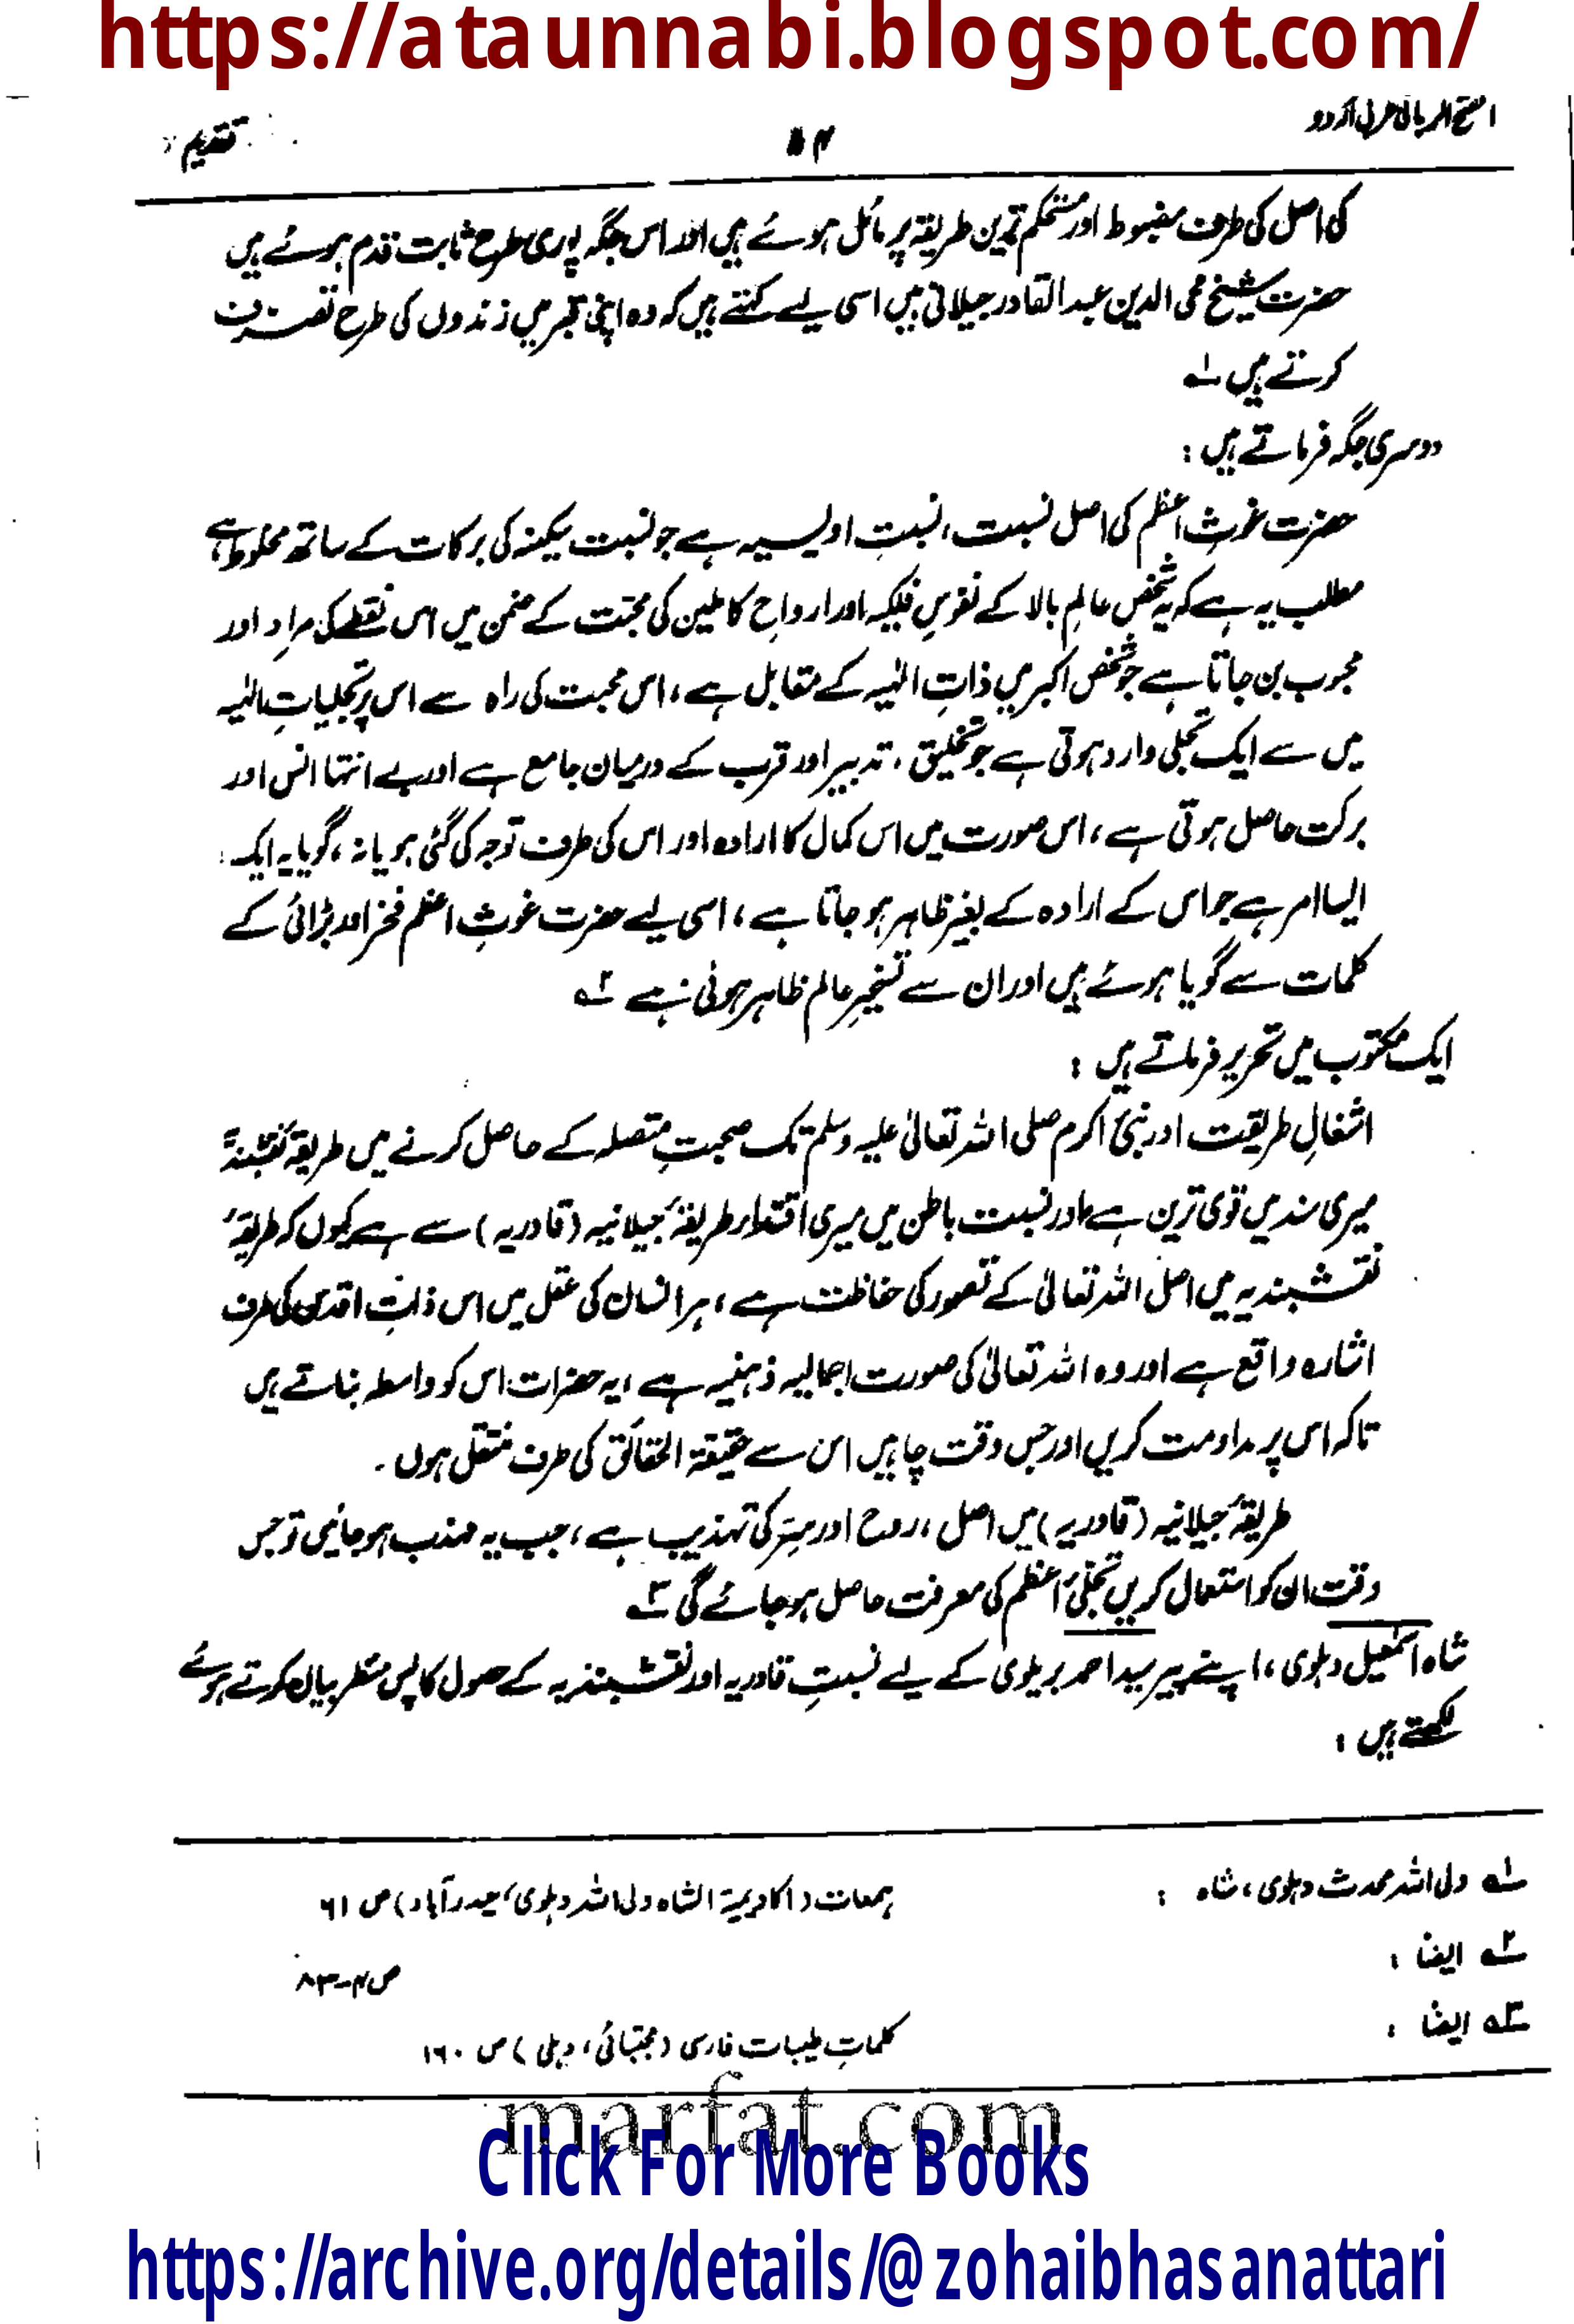 https://ataunnabi.blogspot.com/
الفتح الربانی عربی اردو
۵۴
تقدیم
کی اصل کی طرف مضبوط اور مستحکم ترین طریقہ پر مائل ہوئے ہیں اور اس جگہ پوری طرح ثابت قدم ہوئے ہیں
حضرت شیخ محی الدین عبدالقادر جیلانی ہیں اسی لیے کہتے ہیں کہ وہ اپنی قبر میں زندوں کی طرح تصرف
کرتے ہیں ۱؎
دوسری جگہ فرماتے ہیں :
حضرت غوثِ اعظم کی اصل نسبت، نسبتِ اویسیہ ہے جو نسبت سکینہ کی برکات کے ساتھ مخلوط ہے،
مطلب یہ ہے کہ یہ شخص عالمِ بالا کے نفوسِ فلکیہ اور ارواحِ کاملین کی محبت کے ضمن میں اس نقطے کی مراد اور
محبوب بن جاتا ہے جو شخص اکبر میں ذاتِ الٰہیہ کے مقابل ہے، اس محبت کی راہ سے اس پر تجلیاتِ الٰہیہ
میں سے ایک تجلی وارد ہوتی ہے جو تخلیق، تدبیر اور قرب کے درمیان جامع ہے اور بے انتہا انس اور
برکت حاصل ہوتی ہے، اس صورت میں اس کمال کا ارادہ اور اس کی طرف توجہ کی گئی ہو یا نہ، گویا یہ ایک
ایسا امر ہے جو اس کے ارادہ کے بغیر ظاہر ہو جاتا ہے، اسی لیے حضرت غوثِ اعظم فخر اور بڑائی کے
کلمات سے گویا ہوئے ہیں اور ان سے تسخیرِ عالم ظاہر ہوئی ہے ۲؎
ایک مکتوب میں تحریر فرماتے ہیں :
اشغالِ طریقت اور نبیٔ اکرم صلی اللہ تعالیٰ علیہ وسلم تک صحبتِ متصلہ کے حاصل کرنے میں طریقۂ نقشبندیہ
میری سند میں قوی ترین ہے اور نسبت باطن میں میری اقتداء طریقۂ جیلانیہ (قادریہ) سے ہے کیوں کہ طریقۂ
نقشبندیہ میں اصل اللہ تعالیٰ کے تصور کی حفاظت ہے، ہر انسان کی عقل میں اس ذاتِ اقدس کی طرف
اشارہ واقع ہے اور وہ اللہ تعالیٰ کی صورت اجمالیہ ذہنیہ ہے، یہ حضرات اس کو واسطہ بناتے ہیں
تاکہ اس پر مداومت کریں اور جس وقت چاہیں اس سے حقیقۃ الحقائق کی طرف منتقل ہوں۔
طریقۂ جیلانیہ (قادریہ) میں اصل، روح اور سِرّ کی تہذیب ہے، جب یہ مہذب ہو جائیں تو جس
وقت ان کو استعمال کریں تجلیٔ اعظم کی معرفت حاصل ہو جائے گی ۳؎
شاہ اسمٰعیل دہلوی، اپنے پیر سید احمد بریلوی کے لیے نسبتِ قادریہ اور نقشبندیہ کے حصول کا پس منظر بیان کرتے ہوئے
لکھتے ہیں :
۱؎ ولی اللہ محدث دہلوی، شاہ : ہمعات (اکادیمیۃ الشاہ ولی اللہ دہلوی، حیدرآباد) ص ۶۱
۲؎ ایضاً : ص ۴-۸۳
۳؎ ایضاً : کلماتِ طیبات فارسی (مجتبائی، دہلی) ص ۱۶۰
marfat.com
Click For More Books
https://archive.org/details/@zohaibhasanattari